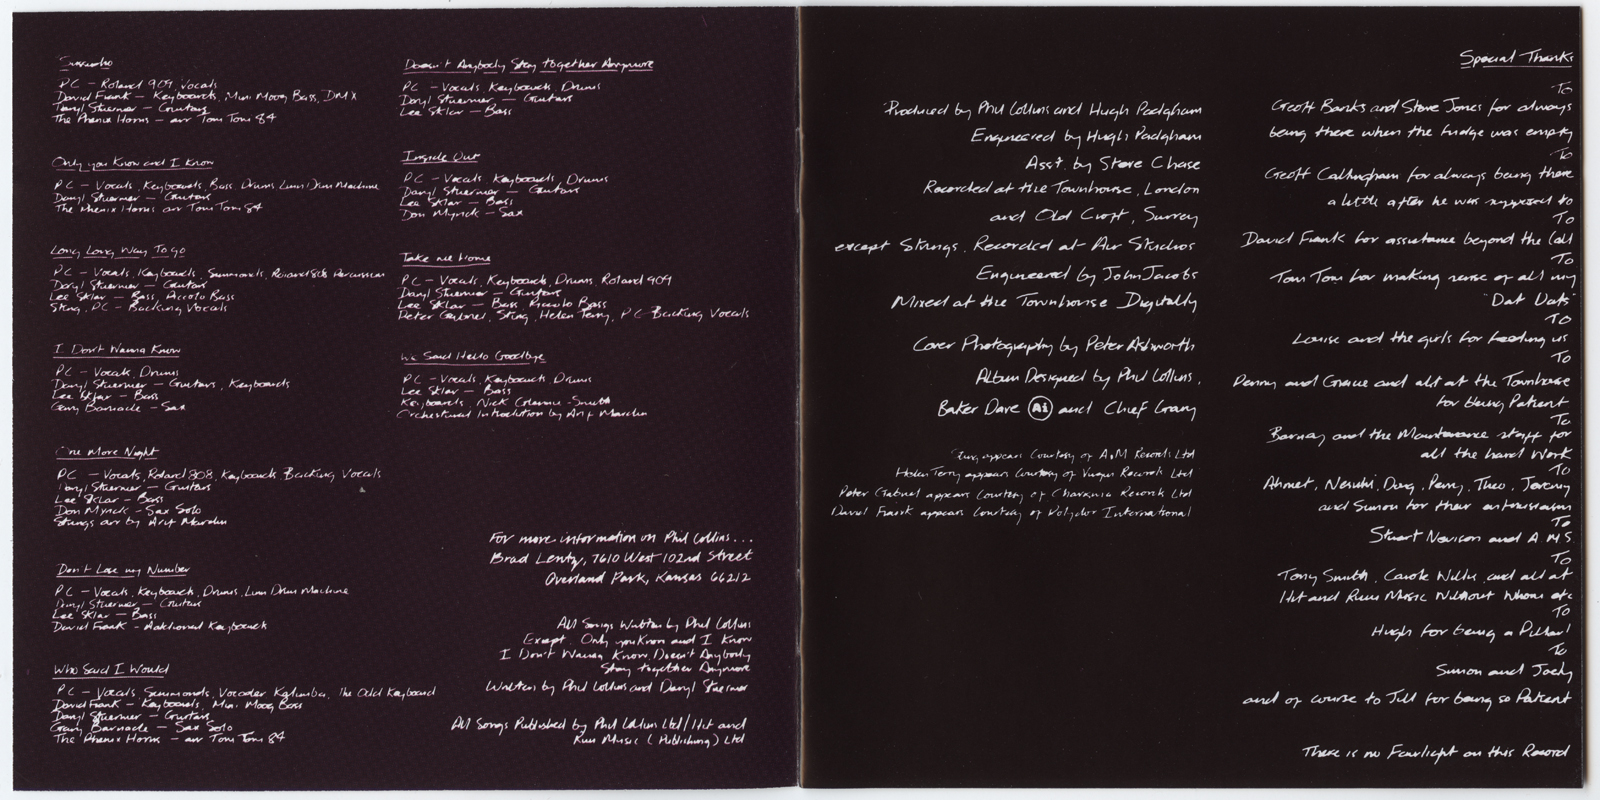 Sussudio
PC – Roland 909, Vocals
David Frank – Keyboards, Mini Moog Bass, DMX
Daryl Stuermer – Guitars
The Phenix Horns – arr Tom Tom 84
Only you Know and I Know
PC – Vocals, Keyboards, Bass Drums Linn Drum Machine
Daryl Stuermer – Guitars
The Phenix Horns arr Tom Tom 84
Long Long Way To go
PC – Vocals, Keyboards, Simmonds, Roland 808 Percussion
Daryl Stuermer – Guitars
Lee Sklar – Bass, Piccolo Bass
Sting, PC – Backing Vocals
I Don't Wanna Know
PC – Vocals, Drums
Daryl Stuermer – Guitars, Keyboards
Lee Sklar – Bass
Gary Barnacle – Sax
One More Night
PC – Vocals, Roland 808, Keyboards Backing Vocals
Daryl Stuermer – Guitars
Lee Sklar – Bass
Don Myrick – Sax Solo
Strings arr by Arif Mardin
Don't Lose my Number
PC – Vocals, Keyboards, Drums, Linn Drum Machine
Daryl Stuermer – Guitars
Lee Sklar – Bass
David Frank – Additional Keyboards
Who Said I Would
PC – Vocals Simmonds, Vocoder Kalimba, The Odd Keyboard
David Frank – Keyboards, Mini Moog Bass
Daryl Stuermer – Guitars
Gary Barnacle – Sax Solo
The Phenix Horns – arr Tom Tom 84
Doesn't Anybody Stay together Anymore
PC – Vocals Keyboards, Drums
Daryl Stuermer – Guitars
Lee Sklar – Bass
Inside Out
PC – Vocals Keyboards, Drums
Daryl Stuermer – Guitars
Lee Sklar – Bass
Don Myrick – Sax
Take me Home
PC – Vocals, Keyboards, Drums Roland 909
Daryl Stuermer – Guitars
Lee Sklar – Bass Piccolo Bass
Peter Gabriel, Sting, Helen Terry, PC Backing Vocals
We Said Hello Goodbye
PC – Vocals, Keyboards, Drums
Lee Sklar – Bass
Keyboards, Nick Glennie-Smith
Orchestral Introduction by Arif Mardin
For more information on Phil Collins...
Brad Lentz, 7610 West 102nd Street
Overland Park, Kansas 66212
All Songs Written by Phil Collins
Except, Only you Know and I Know
I Don't Wanna Know, Doesn't Anybody
Stay together Anymore
Written by Phil Collins and Daryl Stuermer
All Songs Published by Phil Collins Ltd/Hit and
Run Music (Publishing) Ltd
Produced by Phil Collins and Hugh Padgham
Engineered by Hugh Padgham
Asst. by Steve Chase
Recorded at the Townhouse, London
and Old Croft, Surrey
except Strings, Recorded at Air Studios
Engineered by John Jacobs
Mixed at the Townhouse Digitally
Cover Photography by Peter Ashworth
Album Designed by Phil Collins,
Baker Dave Ai and Chief Grany
Sting appears Courtesy of A&M Records Ltd
Helen Terry appears Courtesy of Virgin Records Ltd
Peter Gabriel appears Courtesy of Charisma Records Ltd
David Frank appears Courtesy of Polydor International
Special Thanks
To
Geoff Banks and Steve Jones for always
being there when the fridge was empty
To
Geoff Callingham for always being there
a little after he was supposed to
To
David Frank for assistance beyond the Call
To
Tom Tom for making sense of all my
"Dat Dats"
TO
Louise and the girls for feeding us
To
Penny and Gracie and all at the Townhouse
for being Patient
To
Barney and the Maintenance staff for
all the hard work
To
Ahmet, Nesuhi, Doug, Perry, Theo, Jeremy
and Simon for their enthusiasm
To
Stuart Nevison and AMS
To
Tony Smith, Carole Willis and all at
Hit and Run Music Without Whom etc
To
Hugh for being a Pillar!
To
Simon and Joely
and of course to Jill for being so Patient
There is no Fairlight on this Record